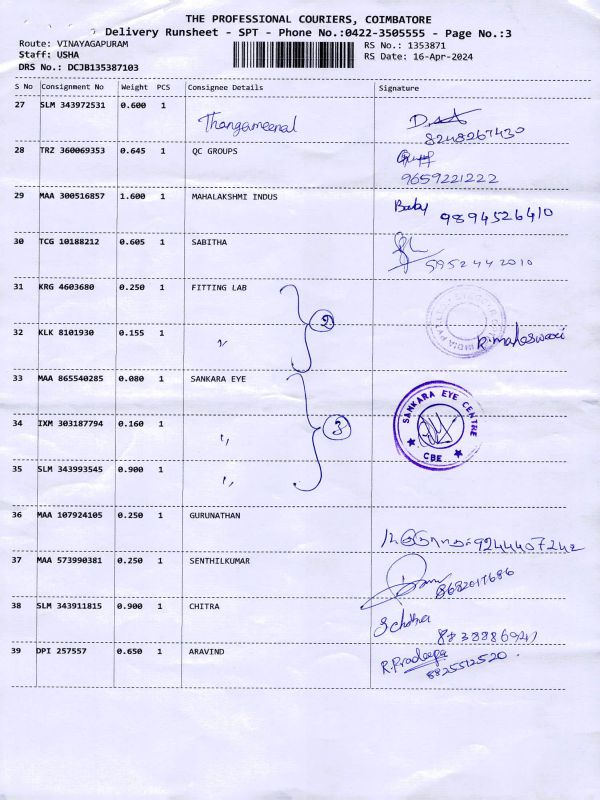 THE PROFESSIONAL COURIERS, COIMBATORE
Delivery Runsheet - SPT - Phone No.:0422-3505555 - Page No.:3
Route: VINAYAGAPURAM
RS No.: 1353871
Staff: USHA
RS Date: 16-Apr-2024
DRS No.: DCJB135387103
S No Consignment No Weight PCS Consignee Details Signature
27 SLM 343972531 0.600 1 Thangameenal
8248267430
28 TRZ 360069353 0.645 1 QC GROUPS
9659221222
29 MAA 300516857 1.600 1 MAHALAKSHMI INDUS Baby 9894526410
30 TCG 10188212 0.605 1 SABITHA
5952442010
31 KRG 4603680 0.250 1 FITTING LAB
②
32 KLK 8101930 0.155 1 " R.maheswari
33 MAA 865540285 0.080 1 SANKARA EYE
SANKARA EYE CENTRE
CBE
34 IXM 303187794 0.160 1 " ③
35 SLM 343993545 0.900 1 "
36 MAA 107924105 0.250 1 GURUNATHAN
9244407242
37 MAA 573990381 0.250 1 SENTHILKUMAR
8682017686
38 SLM 343911815 0.900 1 CHITRA
8838886947
39 DPI 257557 0.650 1 ARAVIND R.Pradeepa
8825512520